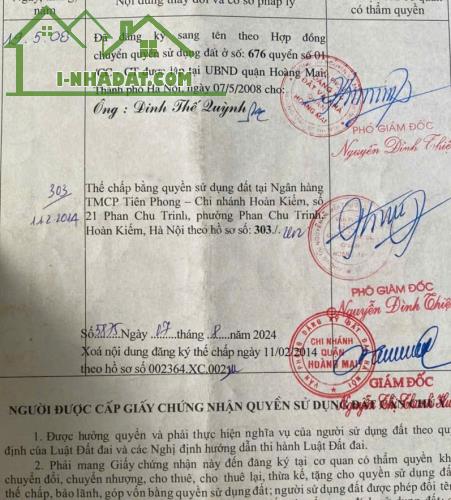 năm
Nội dung thay đổi và cơ sở pháp lý
có thẩm quyền
19.5.08
Đã đăng ký sang tên theo Hợp đồng
chuyển quyền sử dụng đất ở số: 676 quyển số 01
lập tại UBND quận Hoàng Mai,
Thành phố Hà Nội, ngày 07/5/2008 cho:
Ông : Đinh Thế Quỳnh
i-NHADAT.COM
HOÀNG MAI
PHÓ GIÁM ĐỐC
Nguyễn Đình Thiệ
303
11.2.2014
Thế chấp bằng quyền sử dụng đất tại Ngân hàng
TMCP Tiên Phong – Chi nhánh Hoàn Kiếm, số
21 Phan Chu Trinh, phường Phan Chu Trinh,
Hoàn Kiếm, Hà Nội theo hồ sơ số: 303./.
PHÓ GIÁM ĐỐC
Nguyễn Đình Thiệ
Số Ngày 07 ...tháng 8 ...năm 2024
Xoá nội dung đăng ký thế chấp ngày 11/02/2014
theo hồ sơ số 002364.XC.002
VĂN PHÒNG ĐĂNG KÝ ĐẤT ĐAI HÀ NỘI
CHI NHÁNH
QUẬN
HOÀNG MAI
GIÁM ĐỐC
NGƯỜI ĐƯỢC CẤP GIẤY CHỨNG NHẬN QUYỀN SỬ DỤNG ĐẤT CẦN CHÚ
1. Được hưởng quyền và phải thực hiện nghĩa vụ của người sử dụng đất theo quy
định của Luật Đất đai và các Nghị định hướng dẫn thi hành Luật Đất đai.
2. Phải mang Giấy chứng nhận này đến đăng ký tại cơ quan có thẩm quyền khi
chuyển đổi, chuyển nhượng, cho thuê, cho thuê lại, thừa kế, tặng cho quyền sử dụng đất
thế chấp, bảo lãnh, góp vốn bằng quyền sử dụng đất; người sử dụng đất được phép đổi tên